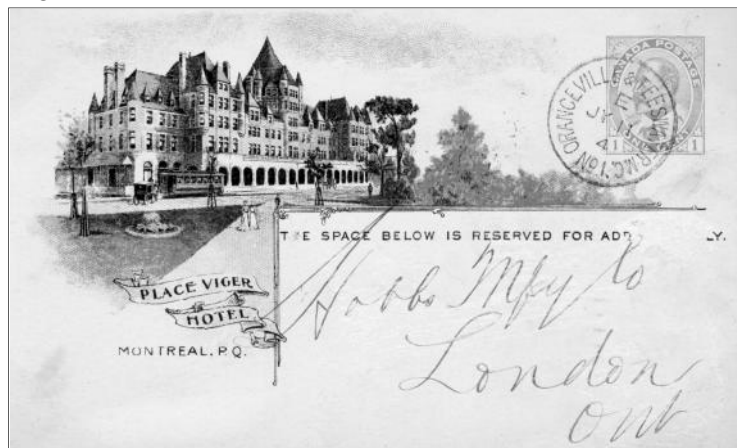 CANADA POSTAGE
1 1
ORANGEVILLE & TEESWATER M.C. No 1
E
JY
4
T E SPACE BELOW IS RESERVED FOR ADD LY.
PLACE VIGER
HOTEL
MONTREAL, P.Q.
Hobbs Mfg Co
London
Ont